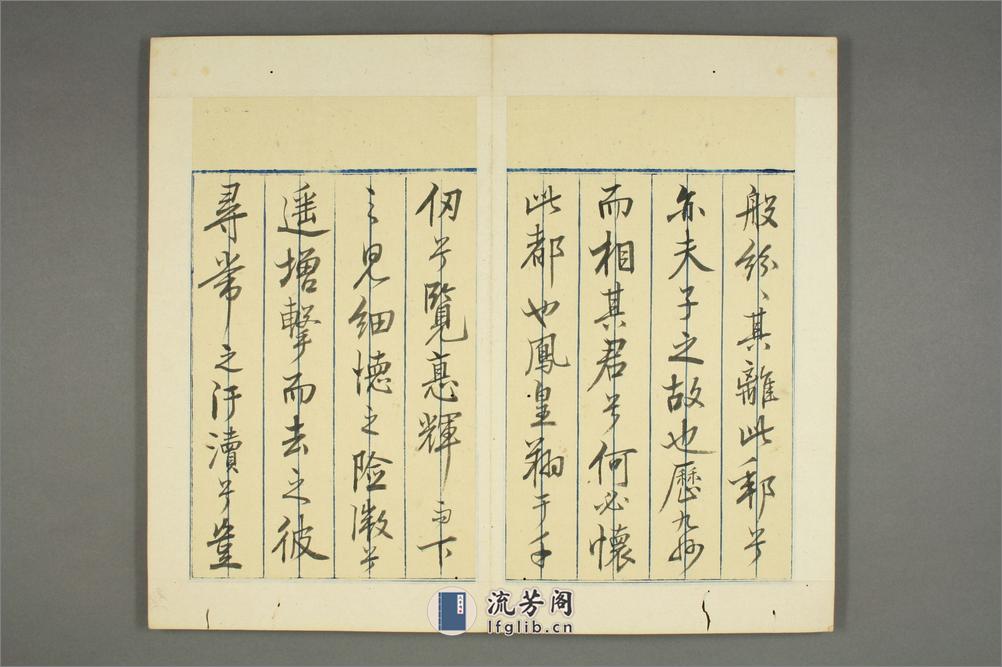 般紛々其離此郵兮
亦夫子之故也歷九州
而相其君兮何必懷
此都也鳳皇翔于千
仞兮覽悳輝而下
之見細德之險微兮
遥增擊而去之彼
尋常之汙瀆兮豈
流芳阁
lfglib.cn